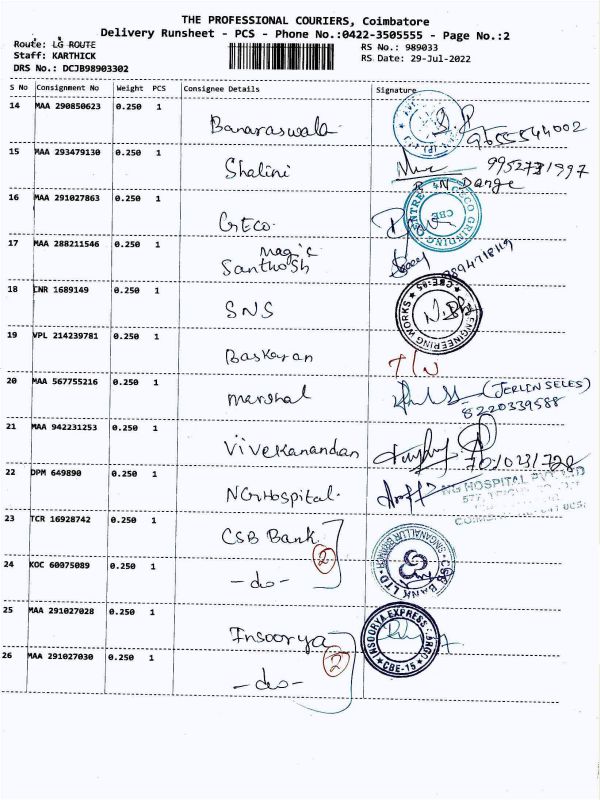 THE PROFESSIONAL COURIERS, Coimbatore
Delivery Runsheet - PCS - Phone No.:0422-3505555 - Page No.:2
Route: LG ROUTE
RS No.: 989033
Staff: KARTHICK
RS Date: 29-Jul-2022
DRS No.: DCJB98903302
S No Consignment No Weight PCS Consignee Details Signature
14 MAA 290850623 0.250 1
Banaraswala
9655544002
15 MAA 293479130 0.250 1
Shalini
9952731997
N. Dange
16 MAA 291027863 0.250 1
GECO
CECO GRINDING CENTRE
CBE
17 MAA 288211546 0.250 1
magic
Santhosh
9894718119
18 CNR 1689149 0.250 1
SNS
ENGINEERING WORKS
19 VPL 214239781 0.250 1
Baskaran
20 MAA 567755216 0.250 1
marshal
(JERLIN SELES)
8220339588
21 MAA 942231253 0.250 1
Vivekanandan
7010231728
22 DPM 649890 0.250 1
NG Hospital.
NG HOSPITAL PVT LTD
23 TCR 16928742 0.250 1
CSB Bank
2
CSB BANK LTD
SINGANALLUR BRANCH
24 KOC 60075089 0.250 1
-do-
25 MAA 291027028 0.250 1
Insoorya
2
INSOORYA EXPRESS CARGO
CBE-15
26 MAA 291027030 0.250 1
-do-